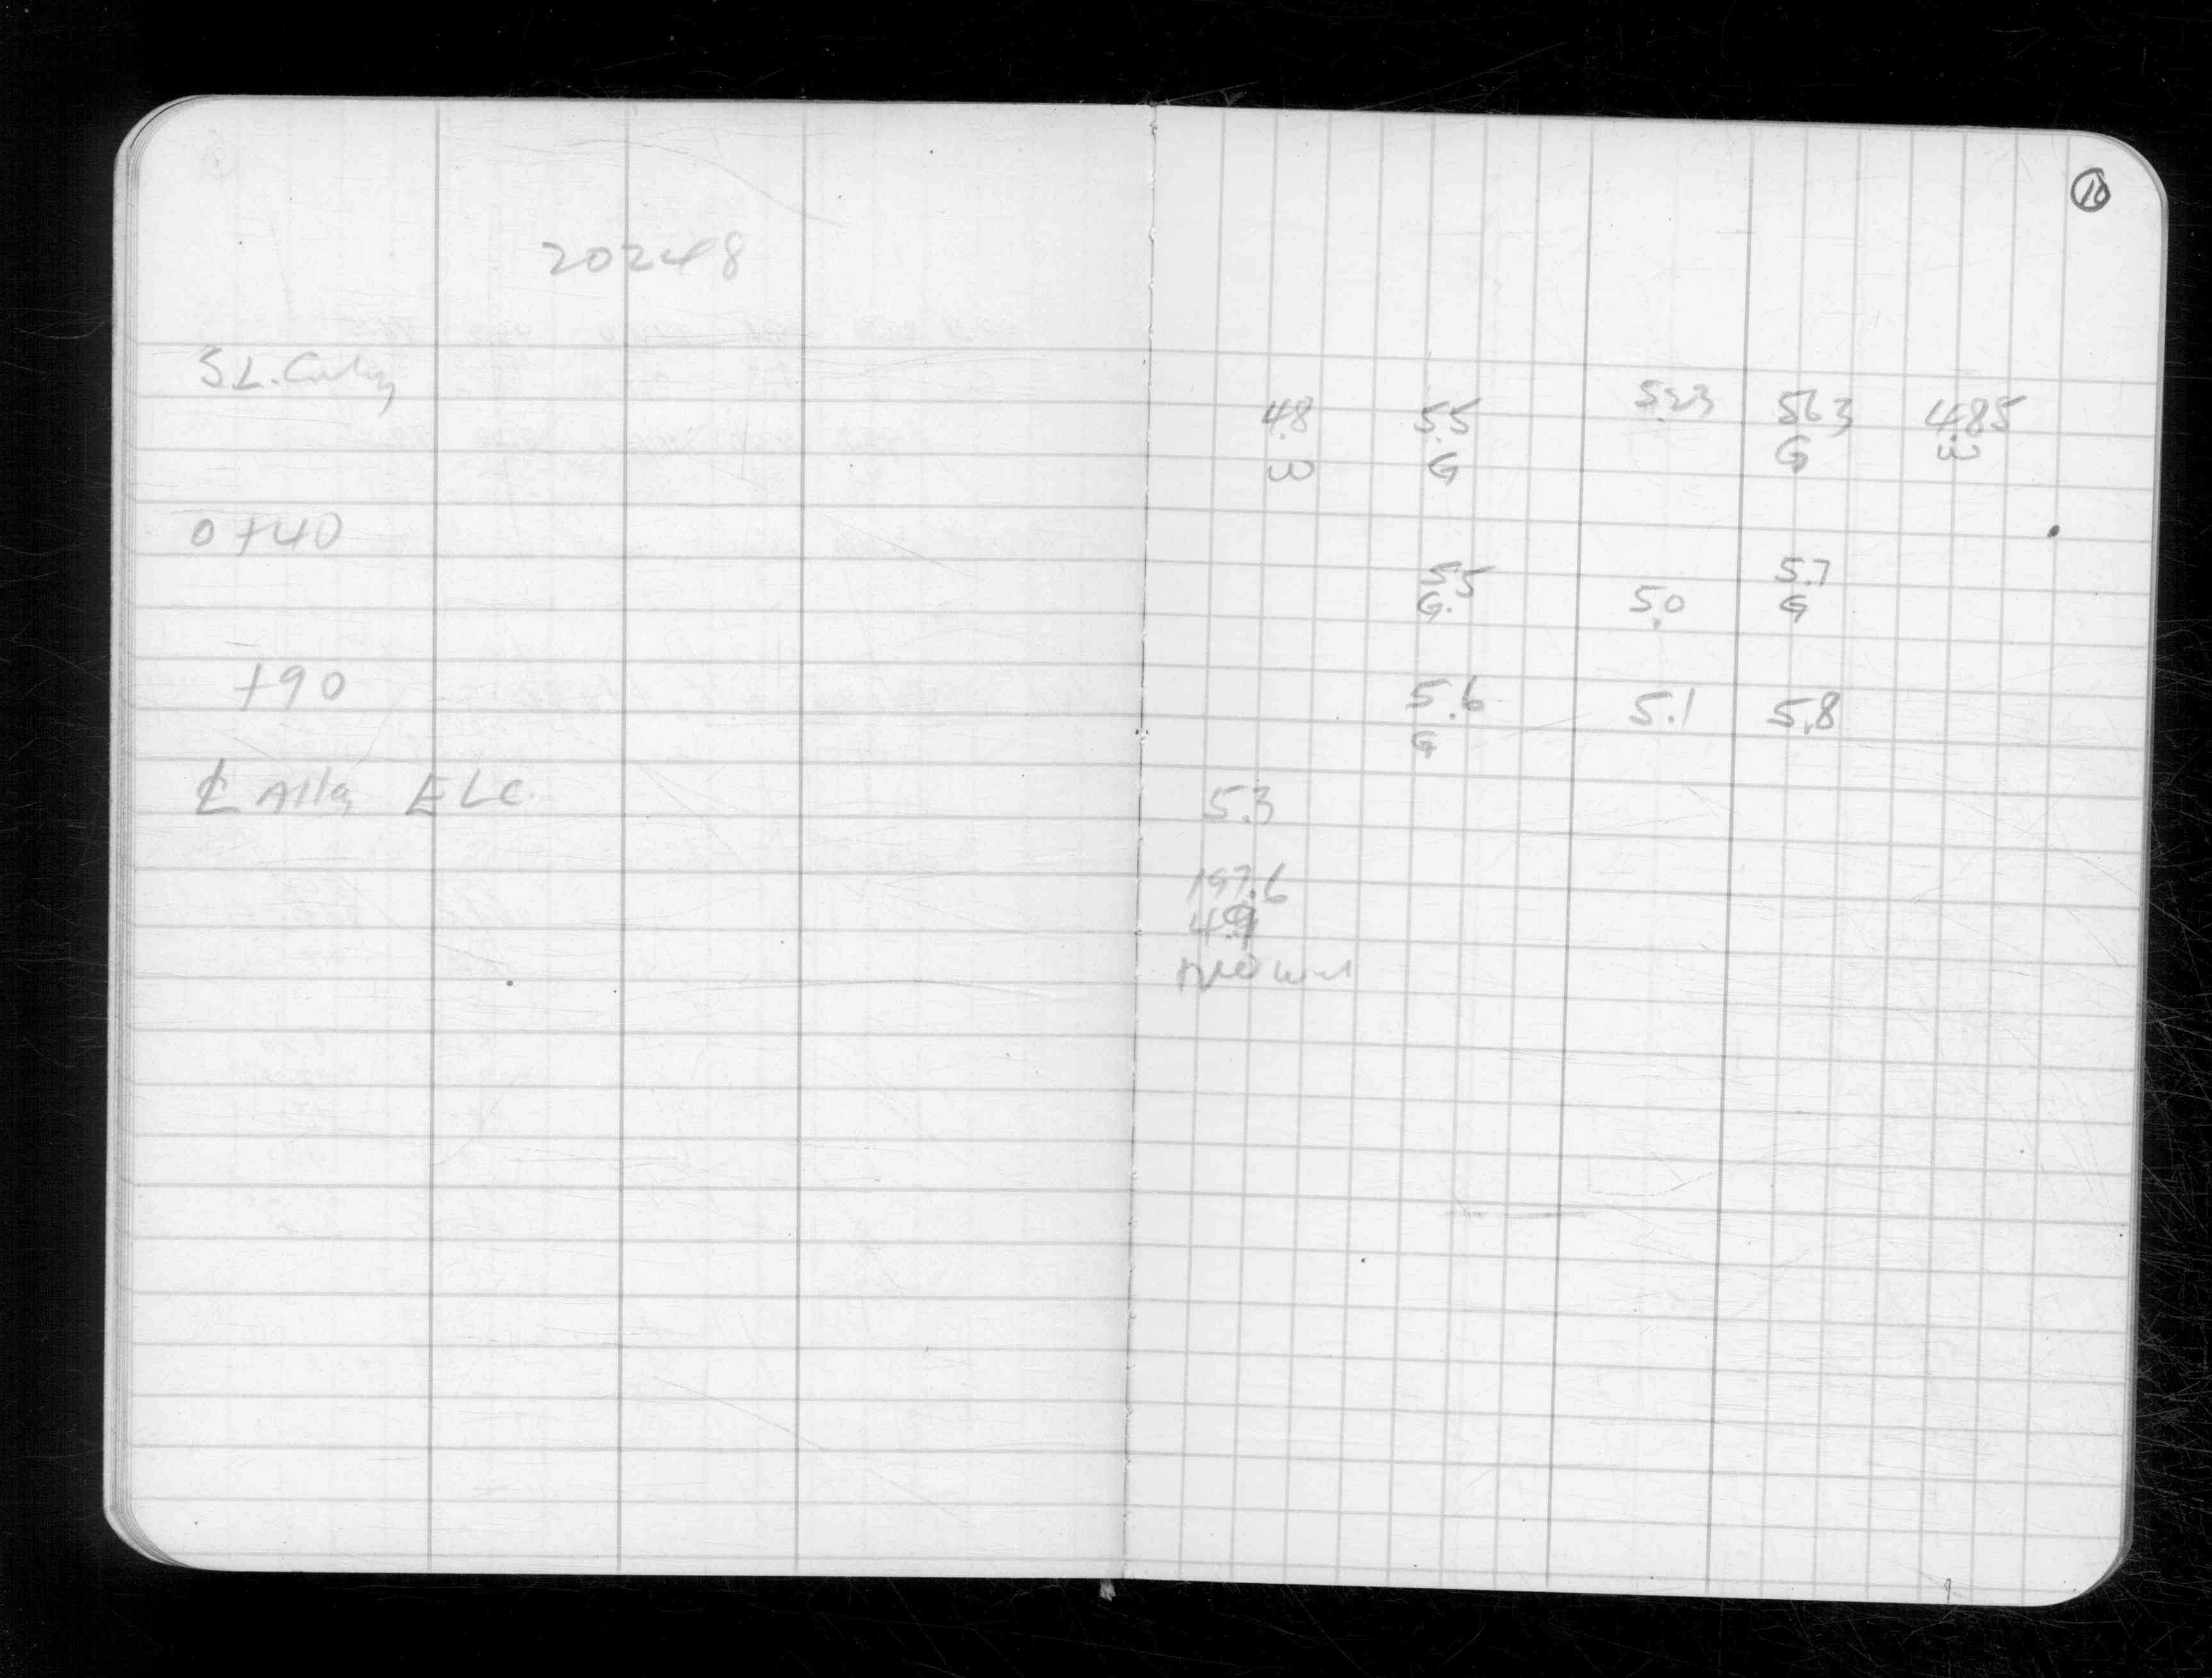 10
20248
S L.
4.8 5.5 5.23 5.63 4.85
W G G W
0+40
5.5 5.0 5.7
G. G
+90
5.6 5.1 5.8
G
℄ Alley ELC.
5.3
197.6
4.9